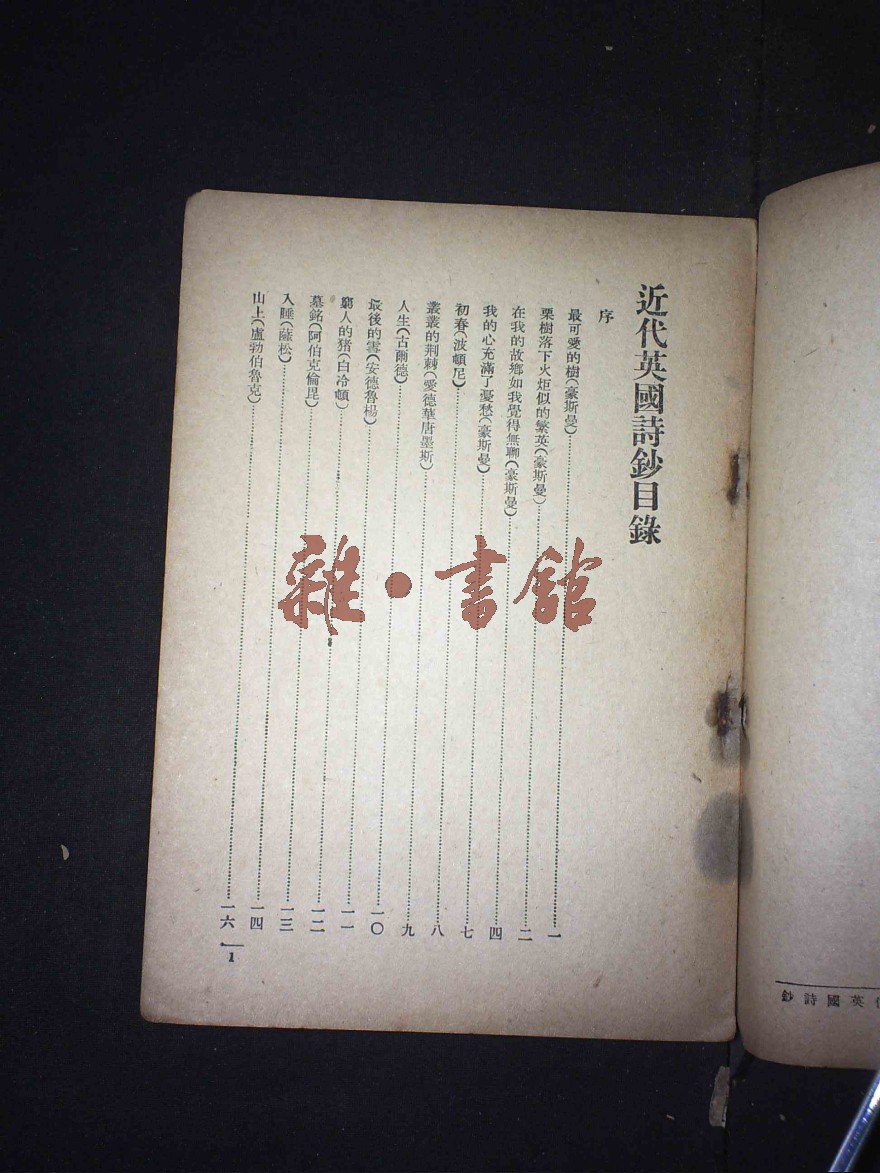 近代英國詩鈔目錄
序
最可愛的樹(豪斯曼)…………一
栗樹落下火炬似的繁英(豪斯曼)…………二
在我的故鄉如我覺得無聊(豪斯曼)…………四
我的心充滿了憂愁(豪斯曼)…………七
初春(波頓尼)…………八
叢叢的荆棘(愛德華唐墨斯)…………九
人生(古爾德)…………一〇
最後的雪(安德魯楊)…………一一
窮人的猪(白冷頓)…………一二
墓銘(阿伯克倫毘)…………一三
入睡(薩松)…………一四
山上(盧勃伯魯克)…………一六
1
英國詩鈔
雜·書館